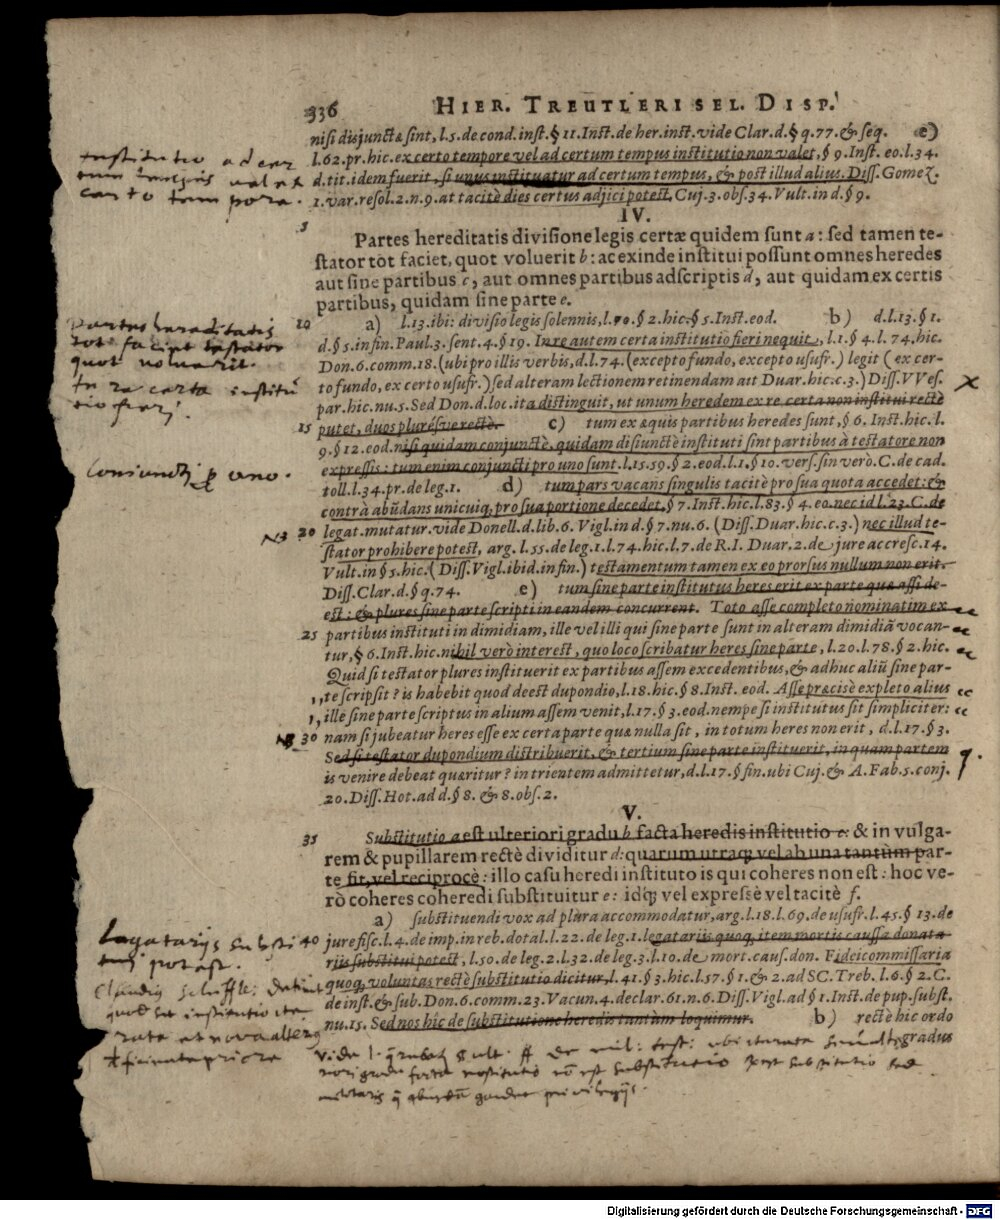 336 HIER. TREUTLERI SEL. DISP.
nisi disjunctæ sint, l.5. de cond. inst. § 11. Inst. de her. inst. vide Clar. d. § q. 77. & seq. e)
l.62. pr. hic. ex certo tempore vel ad certum tempus institutio non valet, § 9. Inst. eo. l. 34.
d. tit. idem fuerit, si unus instituatur ad certum tempus, & post illud alius. Diss. Gomez.
1. var. resol. 2. n. 9. at tacitè dies certus adjici potest, Cuj. 3. obs. 34. Vult. in d. § 9.
institutio ad
valet
tempora.
IV.
5
Partes hereditatis divisione legis certæ quidem sunt a: sed tamen te-
stator tot faciet, quot voluerit b: ac exinde institui possunt omnes heredes
aut sine partibus c, aut omnes partibus adscriptis d, aut quidam ex certis
partibus, quidam sine parte e.
10 a) l. 13. ibi: divisio legis solennis, l. § 2. hic. § 5. Inst. eod. b) d. l. 13. § 1.
d. § 5. in fin. Paul. 3. sent. 4. § 19. In re autem certa institutio fieri nequit, l. 1. § 4. l. 74. hic.
Don. 6. comm. 18. (ubi pro illis verbis, d. l. 74. (excepto fundo, excepto usufr.) legit (ex cer-
to fundo, ex certo usufr.) sed alteram lectionem retinendam ait Duar. hic. c. 3.) Diss. VVes.
par. hic. nu. 5. Sed Don. d. loc. ita distinguit, ut unum heredem ex re certa non institui rectè
15 putet, duos pluresve rectè. c) tum ex æquis partibus heredes sunt, § 6. Inst. hic. l.
9. § 12. eod. nisi quidam conjunctè, quidam disiunctè instituti sint partibus à testatore non
expressis: tum enim conjuncti pro uno sunt. l. 15. 59. § 2. eod. l. 1. § 10. vers. sin verò. C. de cad.
toll. l. 34. pr. de leg. 1. d) tum pars vacans singulis tacitè pro sua quota accedet: &
contrà abũdans unicuiq; pro sua portione decedet, § 7. Inst. hic. l. 83. § 4. eo. nec id l. 23. C. de
20 legat. mutatur. vide Donell. d. lib. 6. Vigl. in d. § 7. nu. 6. (Diss. Duar. hic. c. 3.) nec illud te-
stator prohibere potest, arg. l. 55. de leg. 1. l. 74. hic. l. 7. de R. I. Duar. 2. de jure accresc. 14.
Vult. in § 5. hic. (Diss. Vigl. ibid. in fin.) testamentum tamen ex eo prorsus nullum non erit.
Diss. Clar. d. § q. 74. e) tum sine parte institutus heres erit ex parte quæ assi de-
est: & plures sine parte scripti in eandem concurrent. Toto asse completo nominatim ex
25 partibus instituti in dimidiam, ille vel illi qui sine parte sunt in alteram dimidiã vocan-
tur, § 6. Inst. hic. nihil verò interest, quo loco scribatur heres sine parte, l. 20. l. 78. § 2. hic.
Quid si testator plures instituerit ex partibus assem excedentibus, & adhuc aliũ sine par-
te scripsit? is habebit quod deest dupondio, l. 18. hic. § 8. Inst. eod. Asse præcisè expleto alius
ille sine parte scriptus in alium assem venit, l. 17. § 3. eod. nempe si institutus sit simpliciter:
30 nam si jubeatur heres esse ex certa parte quæ nulla sit, in totum heres non erit, d. l. 17. § 3.
Sed si testator dupondium distribuerit, & tertium sine parte instituerit, in quam partem
is venire debeat quæritur? in trientem admittetur, d. l. 17. § fin. ubi Cuj. & A. Fab. 5. conj.
20. Diss. Hot. ad d. § 8. & 8. obs. 2.
partes hereditatis
tot faciet testator
quot voluerit.
In re certa institu
tio fieri.
Coniuncti pro uno.
V.
35 Substitutio a est ulteriori gradu b facta heredis institutio c: & in vulga-
rem & pupillarem rectè dividitur d: quarum utraq; vel ab una tantùm par-
te fit, vel reciprocè: illo casu heredi instituto is qui coheres non est: hoc ve-
rò coheres coheredi substituitur e: idq; vel expressè vel tacitè f.
a) substituendi vox ad plura accommodatur, arg. l. 18. l. 69. de usufr. l. 45. § 13. de
40 jure fisc. l. 4. de imp. in reb. dotal. l. 22. de leg. 1. legatariis quoq; item mortis caussa donata-
riis substitui potest, l. 50. de leg. 2. l. 32. de leg. 3. l. 10. de mort. caus. don. Fideicommissaria
quoq; voluntas rectè substitutio dicitur, l. 41. § 3. hic. l. 57. § 1. & 2. ad SC. Treb. l. 6. § 2. C.
de inst. & sub. Don. 6. comm. 23. Vacun. 4. declar. 61. n. 6. Diss. Vigl. ad § 1. Inst. de pup. subst.
nu. 15. Sed nos hîc de substitutione heredis tantùm loquimur. b) rectè hic ordo
gradus
Legatarijs substi
tui potest.
Digitalisierung gefördert durch die Deutsche Forschungsgemeinschaft - DFG